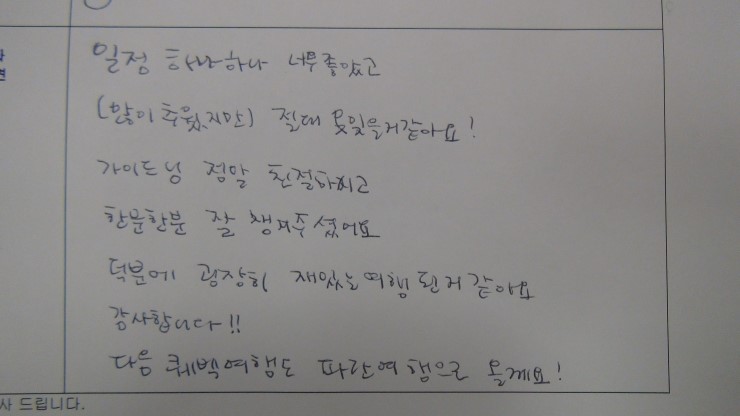 일정 하나하나 너무좋았고
(많이 추웠지만) 절대 못잊을거같아요!
가이드님 정말 친절하시고
한분한분 잘 챙겨주셨어요
덕분에 굉장히 재밌는여행 된거같아요
감사합니다!!
다음 퀘벡여행도 파란여행으로 올게요!
사 드립니다.